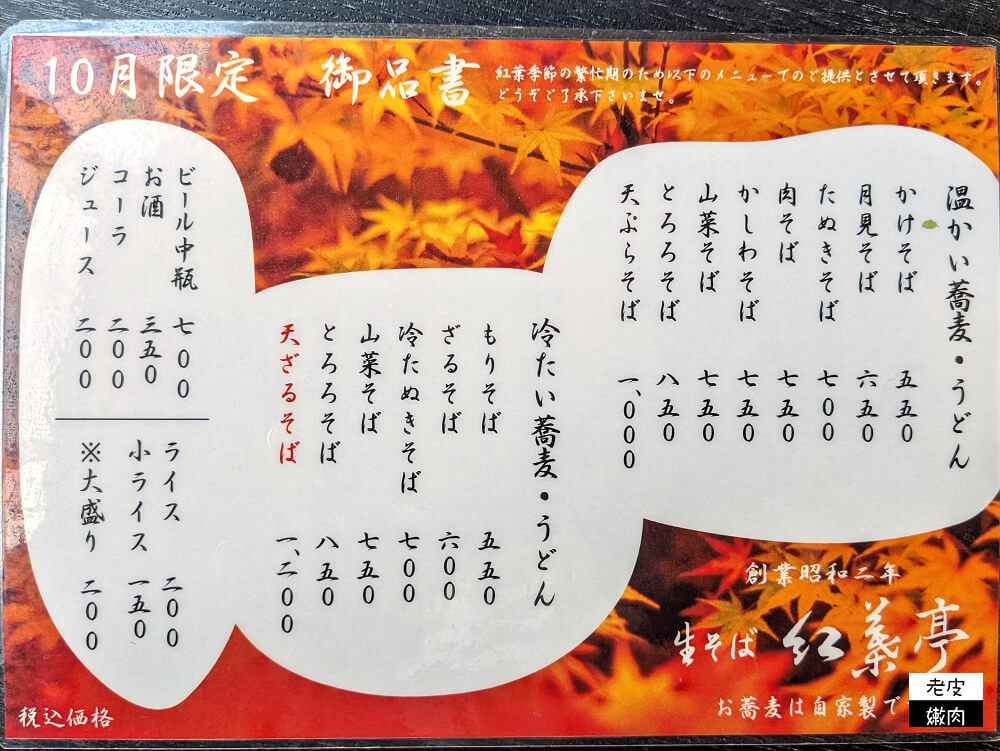 10月限定 御品書
紅葉季節の繁忙期のため以下のメニューでのご提供とさせて頂きます。
どうぞご了承下さいませ。
温かい蕎麦・うどん
かけそば 五五0
月見そば 六五0
たぬきそば 七00
肉そば 七五0
かしわそば 七五0
山菜そば 七五0
とろろそば 八五0
天ぷらそば 一、000
冷たい蕎麦・うどん
もりそば 五五0
ざるそば 六00
冷たぬきそば 七00
山菜そば 七五0
とろろそば 八五0
天ざるそば 一、二00
ビール中瓶 七00
お酒 三五0
コーラ 二00
ジュース 二00
ライス 二00
小ライス 一五0
※大盛り 二00
創業昭和二年
生そば 紅葉亭
お蕎麦は自家製で
税込価格
老皮
嫩肉